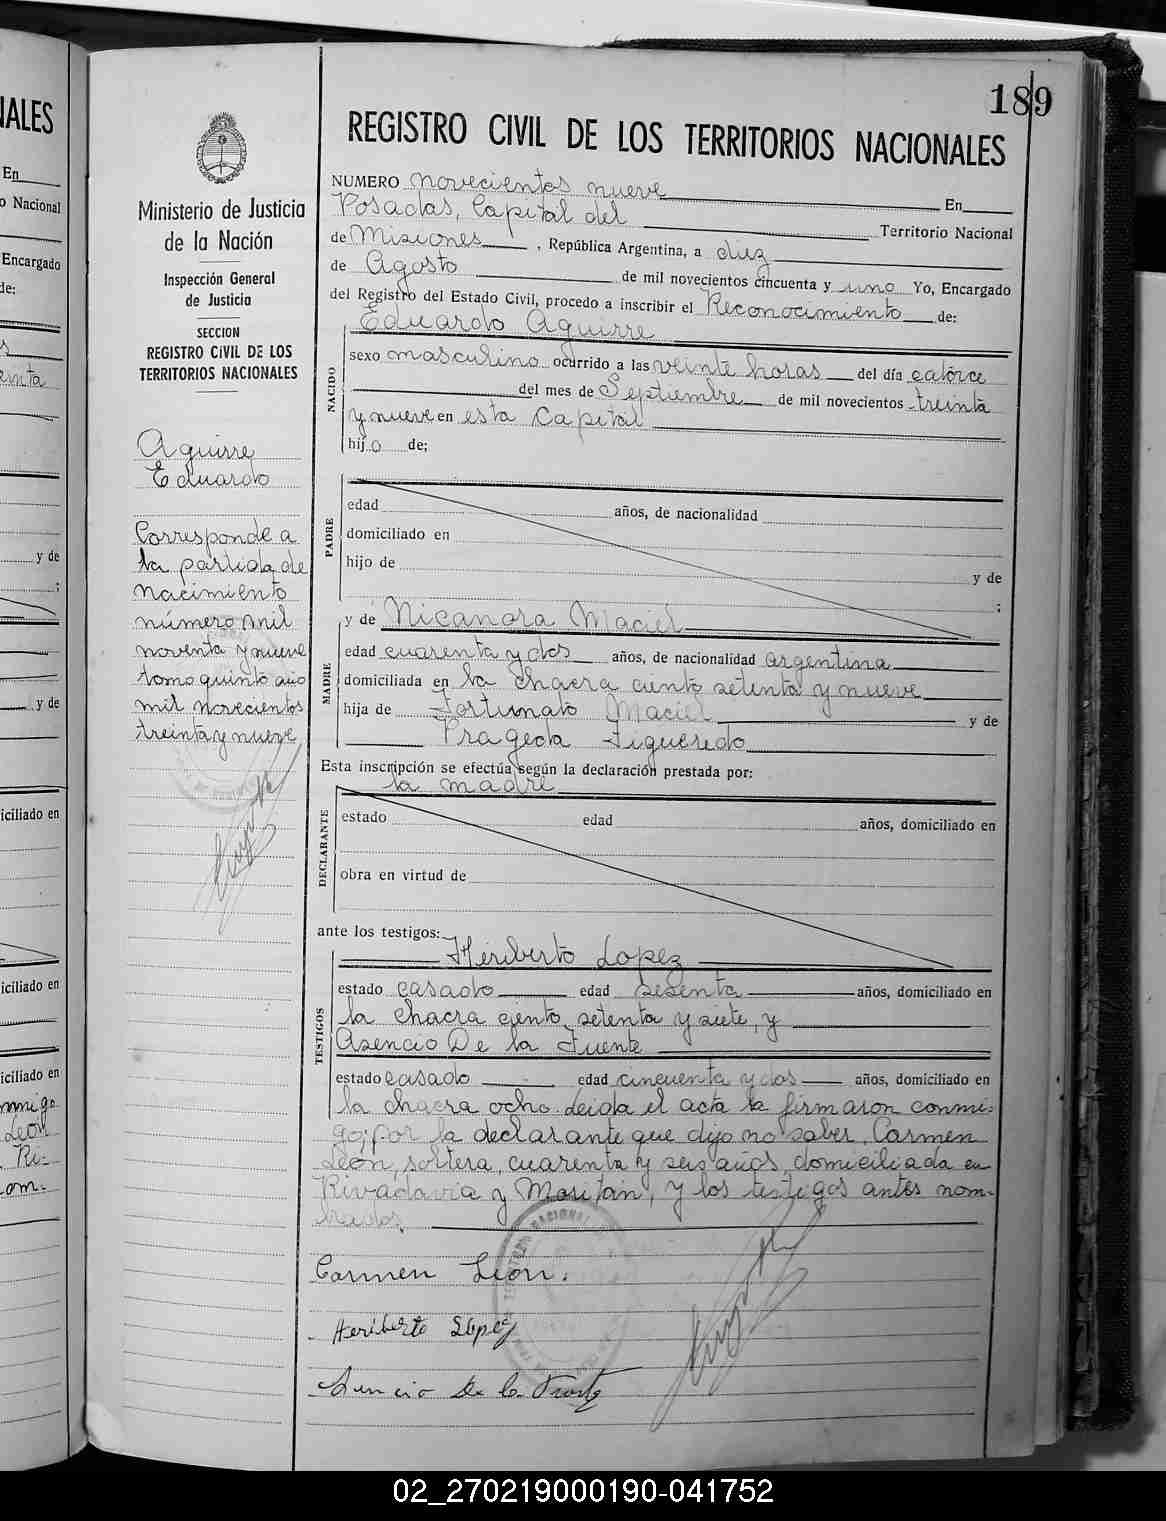 189
REGISTRO CIVIL DE LOS TERRITORIOS NACIONALES
Ministerio de Justicia
de la Nación
Inspección General
de Justicia
SECCION
REGISTRO CIVIL DE LOS
TERRITORIOS NACIONALES
Aguirre
Eduardo
Corresponde a
la partida de
nacimiento
número mil
noventa y nueve
tomo quinto año
mil novecientos
treinta y nueve
NUMERO novecientos nueve En
Posadas, Capital del Territorio Nacional
de Misiones, República Argentina, a diez
de Agosto de mil novecientos cincuenta y uno Yo, Encargado
del Registro del Estado Civil, procedo a inscribir el Reconocimiento de:
Eduardo Aguirre
NACIDO
sexo masculino ocurrido a las veinte horas del día catorce
del mes de Septiembre de mil novecientos treinta
y nueve en esta Capital
hijo de;
PADRE
edad años, de nacionalidad
domiciliado en
hijo de y de
;
y de Nicanora Maciel
MADRE
edad cuarenta y dos años, de nacionalidad argentina
domiciliada en la chacra ciento setenta y nueve
hija de Fortunato Maciel y de
Prageda Figueredo
Esta inscripción se efectúa según la declaración prestada por:
la madre
DECLARANTE
estado edad años, domiciliado en
obra en virtud de
ante los testigos:
Heriberto Lopez
TESTIGOS
estado casado edad sesenta años, domiciliado en
la chacra ciento setenta y siete, y
Asencio De la Fuente
estado casado edad cincuenta y dos años, domiciliado en
la chacra ocho. Leida el acta la firmaron conmi-
go; por la declarante que dijo no saber, Carmen
León, soltera, cuarenta y seis años, domiciliada en
Rivadavia y Moritán, y los testigos antes nom-
brados.
Carmen León.
Heriberto López
NALES
En
o Nacional
Encargado
de:
y de
;
y de
iciliado en
iciliado en
iciliado en
León
Ri-
om-
02_270219000190-041752